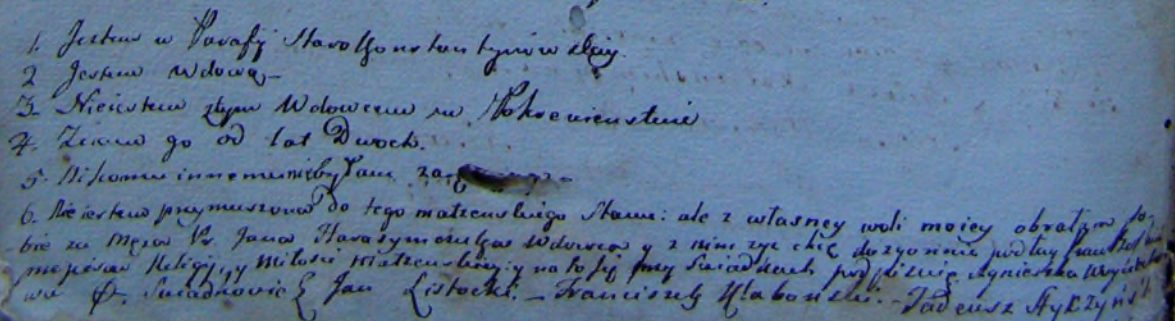 1. Jestem w Parafij Starokonstantynowskiey.
2 Jestem Wdową
3. Nieiestem z tym Wdowcem w Pokrewienstwie
4. Znam go od lat Dwoch.
5. Nikomu innemu niebyłam
6. Nie iestem przymuszona do tego małzenskiego Stanu: ale z własney woli moiey obrałam so-
bie za Męża Jana Harasymczuka Wdowca y z nim żyć chcę dozgonnie podług
Religij, y Miłości małzenskiey: y na to się przy Swiadkach podpisuię Agnieszka
Swiadkowie Jan Listocki. – Franciszek – Tadeusz